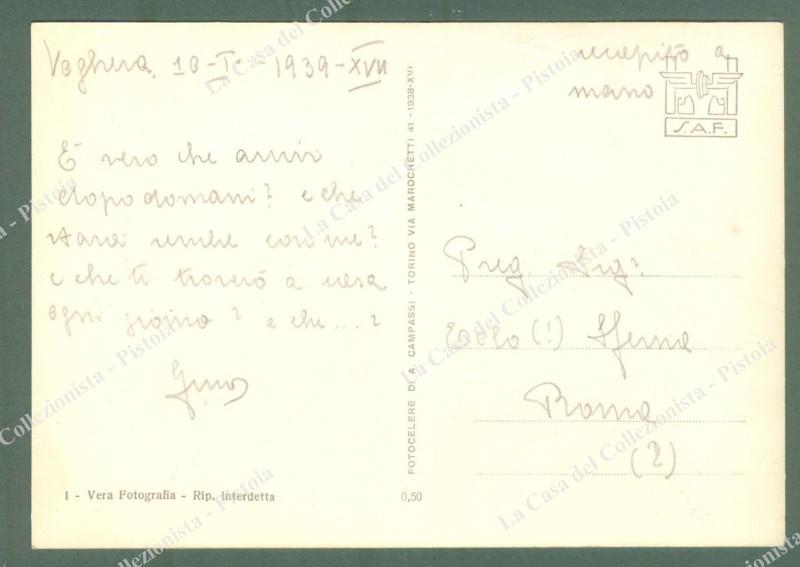 Voghera, 10 - 1939 - XVII
È vero che arrivi
dopodomani? e che
starai sempre con me?
e che ti troverò a casa
ogni giorno? e che ....?
recapito a
mano
S.A.F.
Preg. Sig.
(!)
Roma
(2)
FOTOCELERE DI A. CAMPASSI - TORINO VIA MAROCHETTI 41 - 1938-XVI
1 - Vera Fotografia - Rip. Interdetta
0,50
La Casa del Collezionista - Pistoia